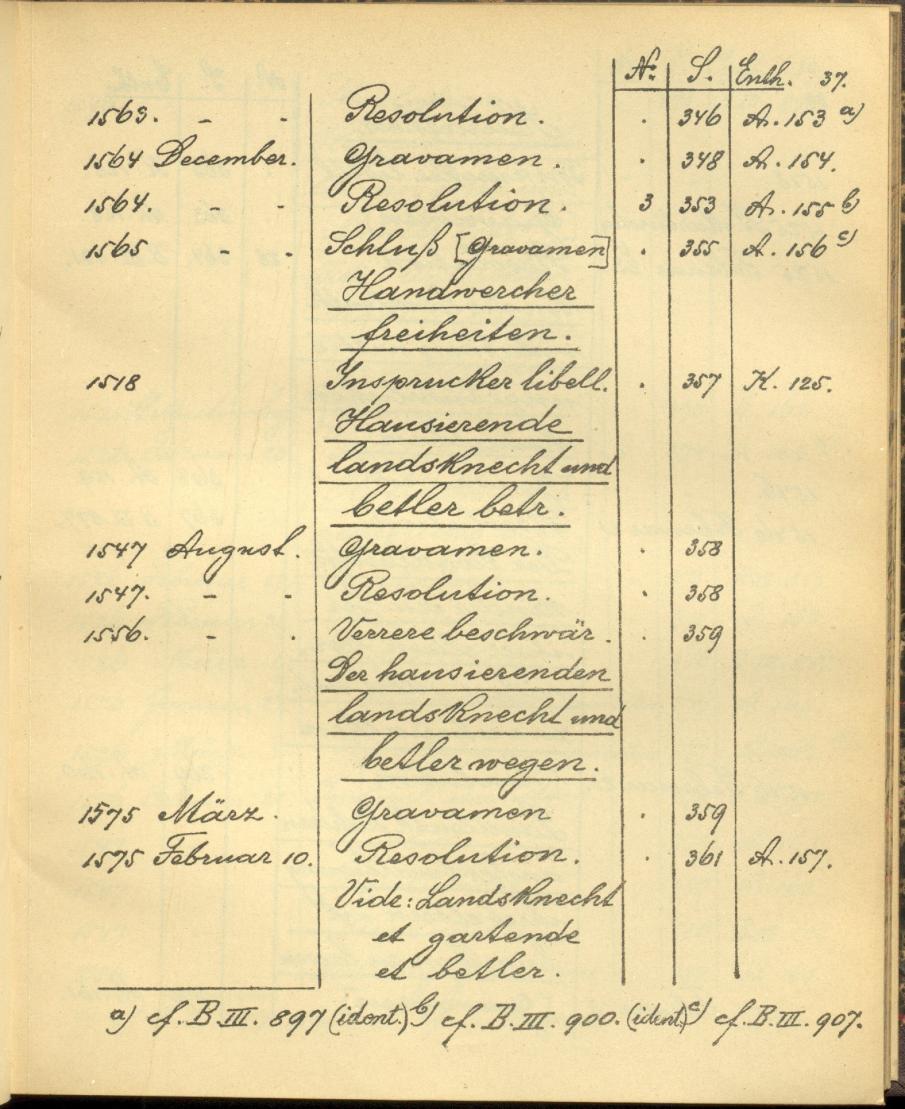 No. S. Enth. 37.
1563. - - Resolution. . 346 A. 153 a)
1564 December. Gravamen. . 348 A. 154.
1564. - - Resolution. 3 353 A. 155 b)
1565 - - Schluß [Gravamen] . 355 A. 156 c)
Handwercher
freiheiten.
1518 Insprucker libell. . 357 K. 125.
Hausierende
landsknecht und
betler betr.
1547 August. Gravamen. . 358
1547. - - Resolution. . 358
1556. - . Verrere beschwär. . 359
Der hausierenden
landsknecht und
betler wegen.
1575 März. Gravamen . 359
1575 Februar 10. Resolution. . 361 A. 157.
Vide: Landsknecht
et gartende
et betler.
a) cf. B. III. 897 (ident.) b) cf. B. III. 900. (ident.) c) cf. B. III. 907.